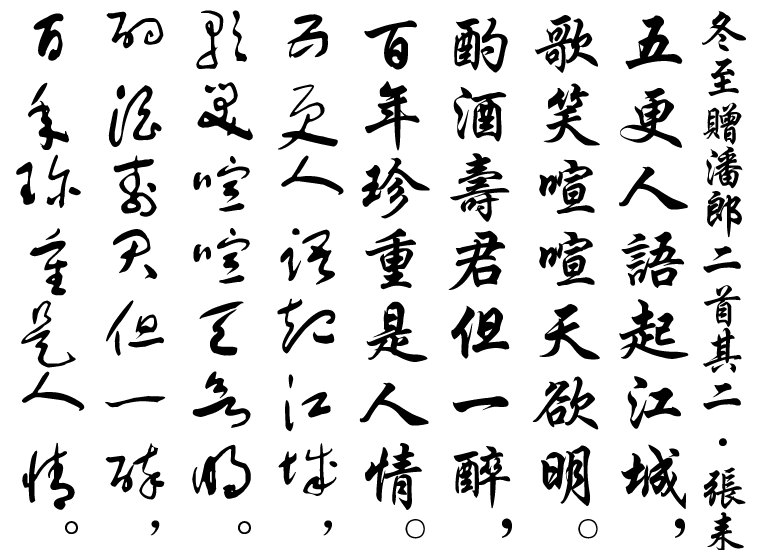 冬至贈潘郎二首其二・張耒
五更人語起江城，
歌笑喧喧天欲明。
酌酒壽君但一醉，
百年珍重是人情。
五更人語起江城，
歌笑喧喧天欲明。
酌酒壽君但一醉，
百年珍重是人情。